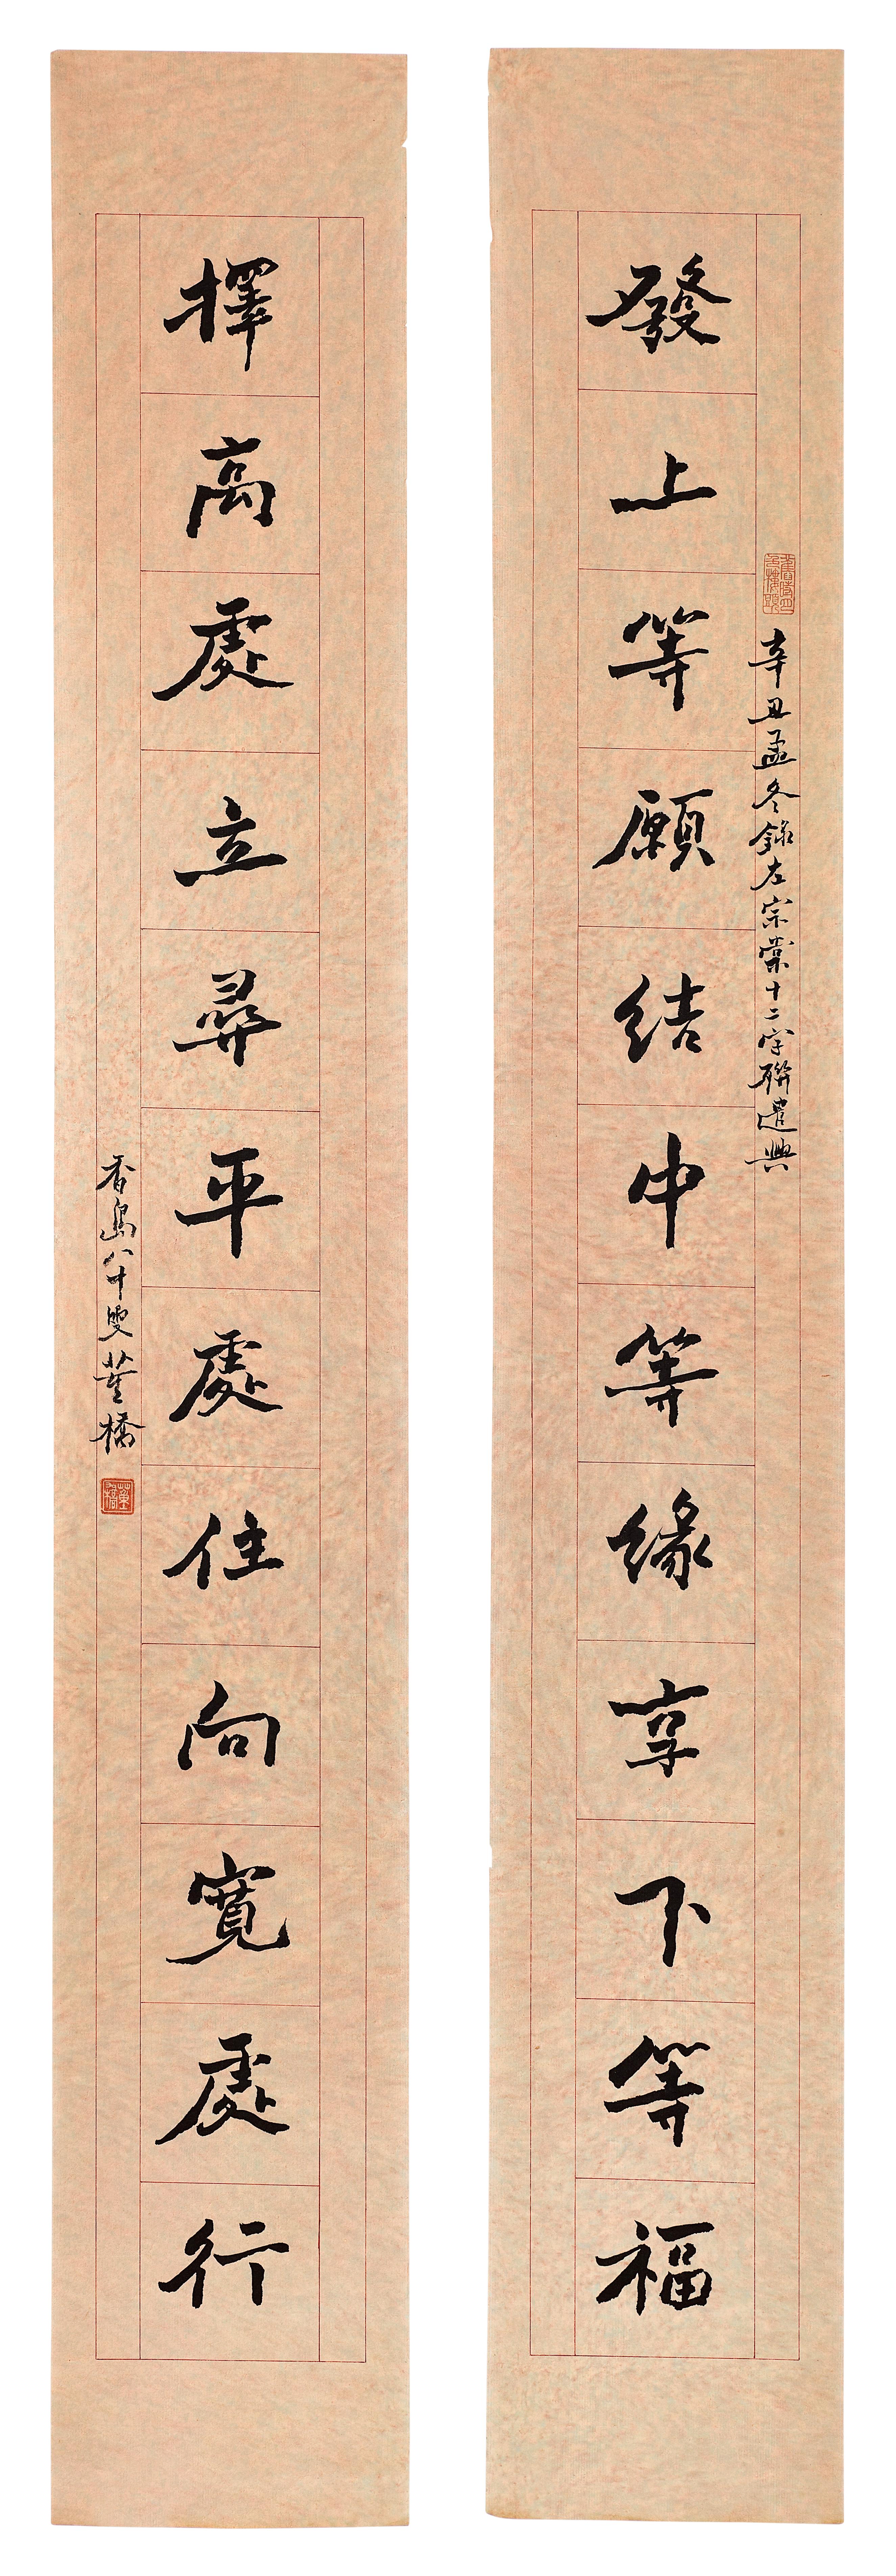 發上等願結中等緣享下等福
辛丑孟冬錄左宗棠十二字聯遣興
擇高處立尋平處住向寬處行
香島八十叟董橋
董橋